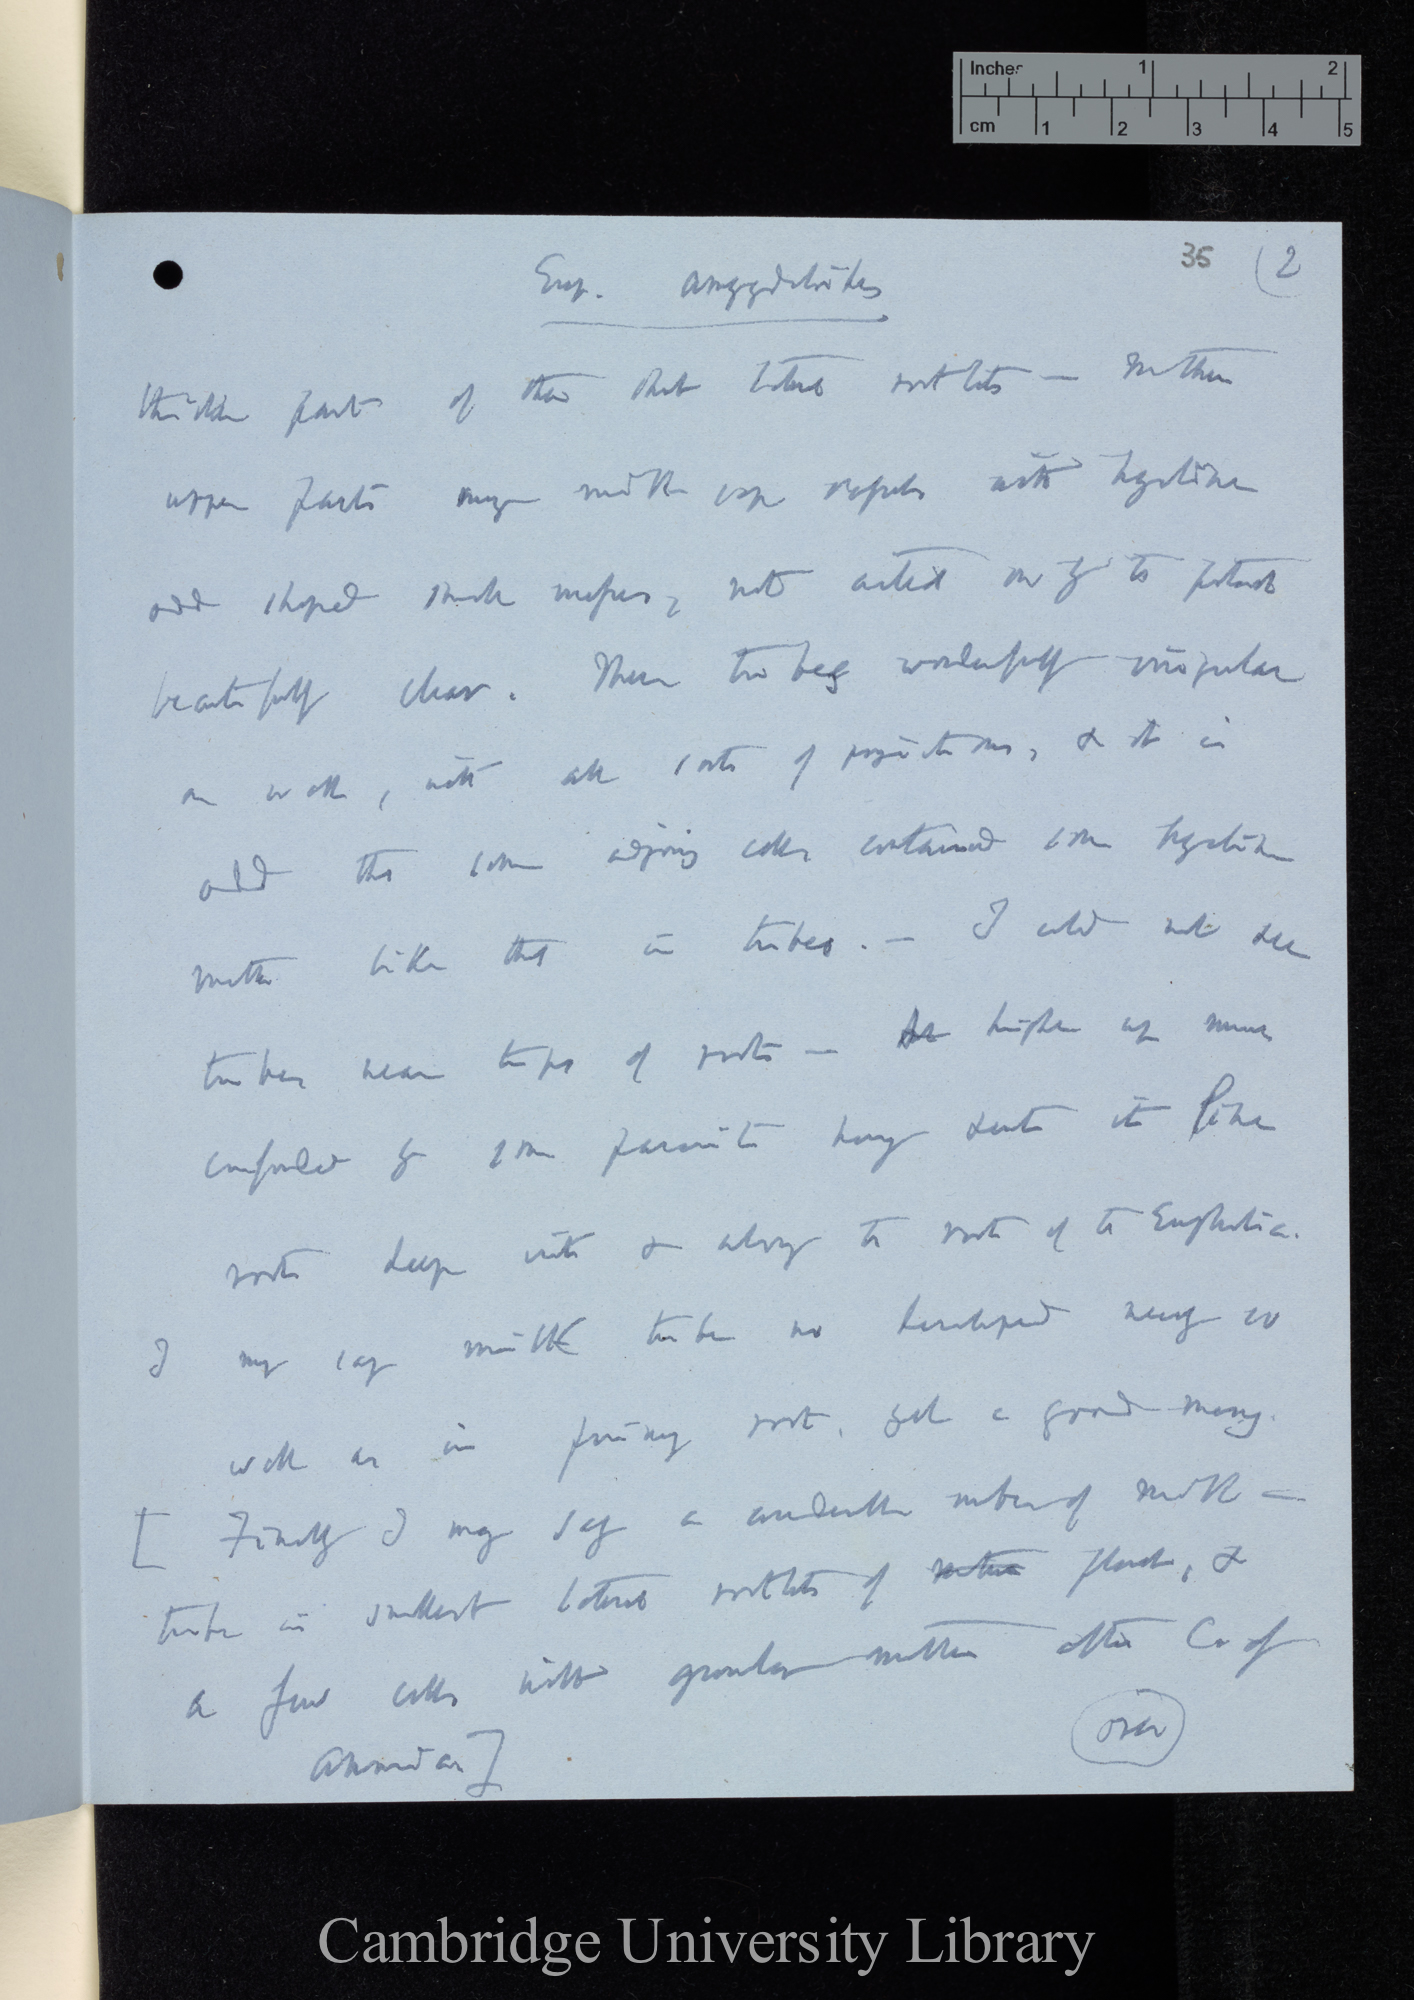 Inches 1 2
cm 1 2 3 4 5
35 (2
Eup. amygdaloides
thicker part of these short lateral rootlets — In these
upper parts many milk cups with hyaline
odd shaped small masses, not acted on by to potash
beautifully clear. These tubes wonderfully irregular
as well, with all sorts of projections, & it is
odd that some adjoining cells contained some hyaline
matter like that in tubes. — I could not see
tubes near tips of roots — At higher up much
confounded by some parasite having sent its fine
roots deep into & along the root of the Euphorbia.
I may say milk tube not developed nearly so
well as in primary root, yet a good many.
[ Finally I may say a considerable number of milk —
tubes in smallest lateral rootlets of plant, &
a few cells with granular matter after C. of
Ammonia]
over
Cambridge University Library